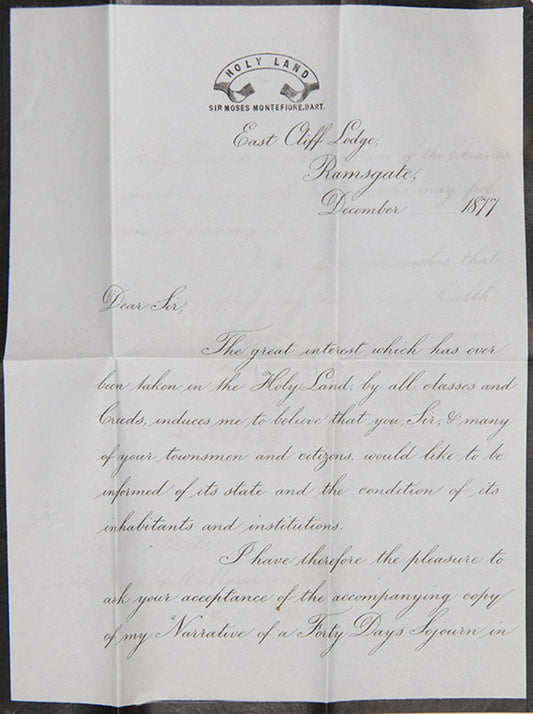 HOLY LAND
SIR MOSES MONTEFIORE. BART.
East Cliff Lodge,
Ramsgate,
December 1877
Dear Sir,
The great interest which has ever
been taken in the Holy Land, by all classes and
Creeds, induces me to believe that you, Sir, & many
of your townsmen and citizens, would like to be
informed of its state and the condition of its
inhabitants and institutions.
I have therefore the pleasure to
ask your acceptance of the accompanying copy
of my "Narrative of a Forty Days Sojourn in